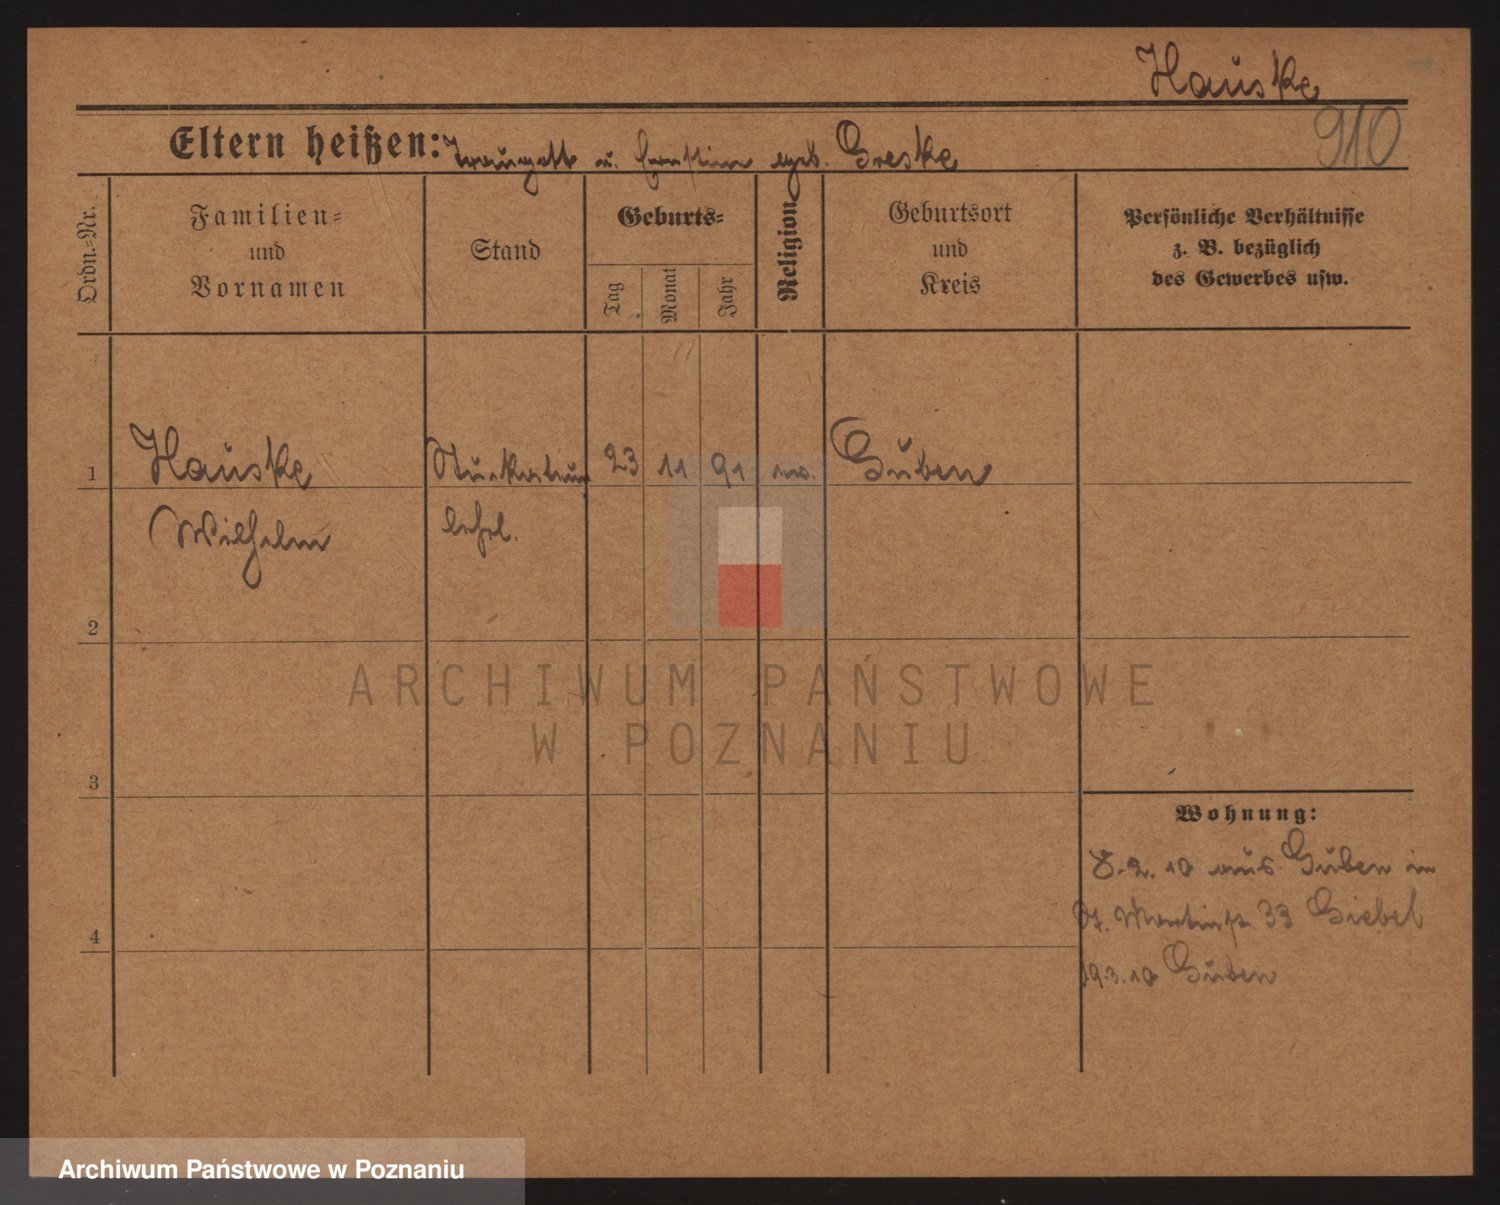 Hauske
910
Eltern heißen: Traugott u. geb. Greske
Ordn.-Nr.
Familien-
und
Vornamen
Stand
Geburts-
Tag
Monat
Jahr
Religion
Geburtsort
und
Kreis
Persönliche Verhältnisse
z. B. bezüglich
des Gewerbes usw.
1 Hauske 23 11 91 Guben
Wilhelm lehrl.
2
ARCHIWUM PAŃSTWOWE
W POZNANIU
3
Wohnung:
8.2.10 aus Guben in
St. Martinstr. 33 Giebel
4
19.3.10 Guben
Archiwum Państwowe w Poznaniu